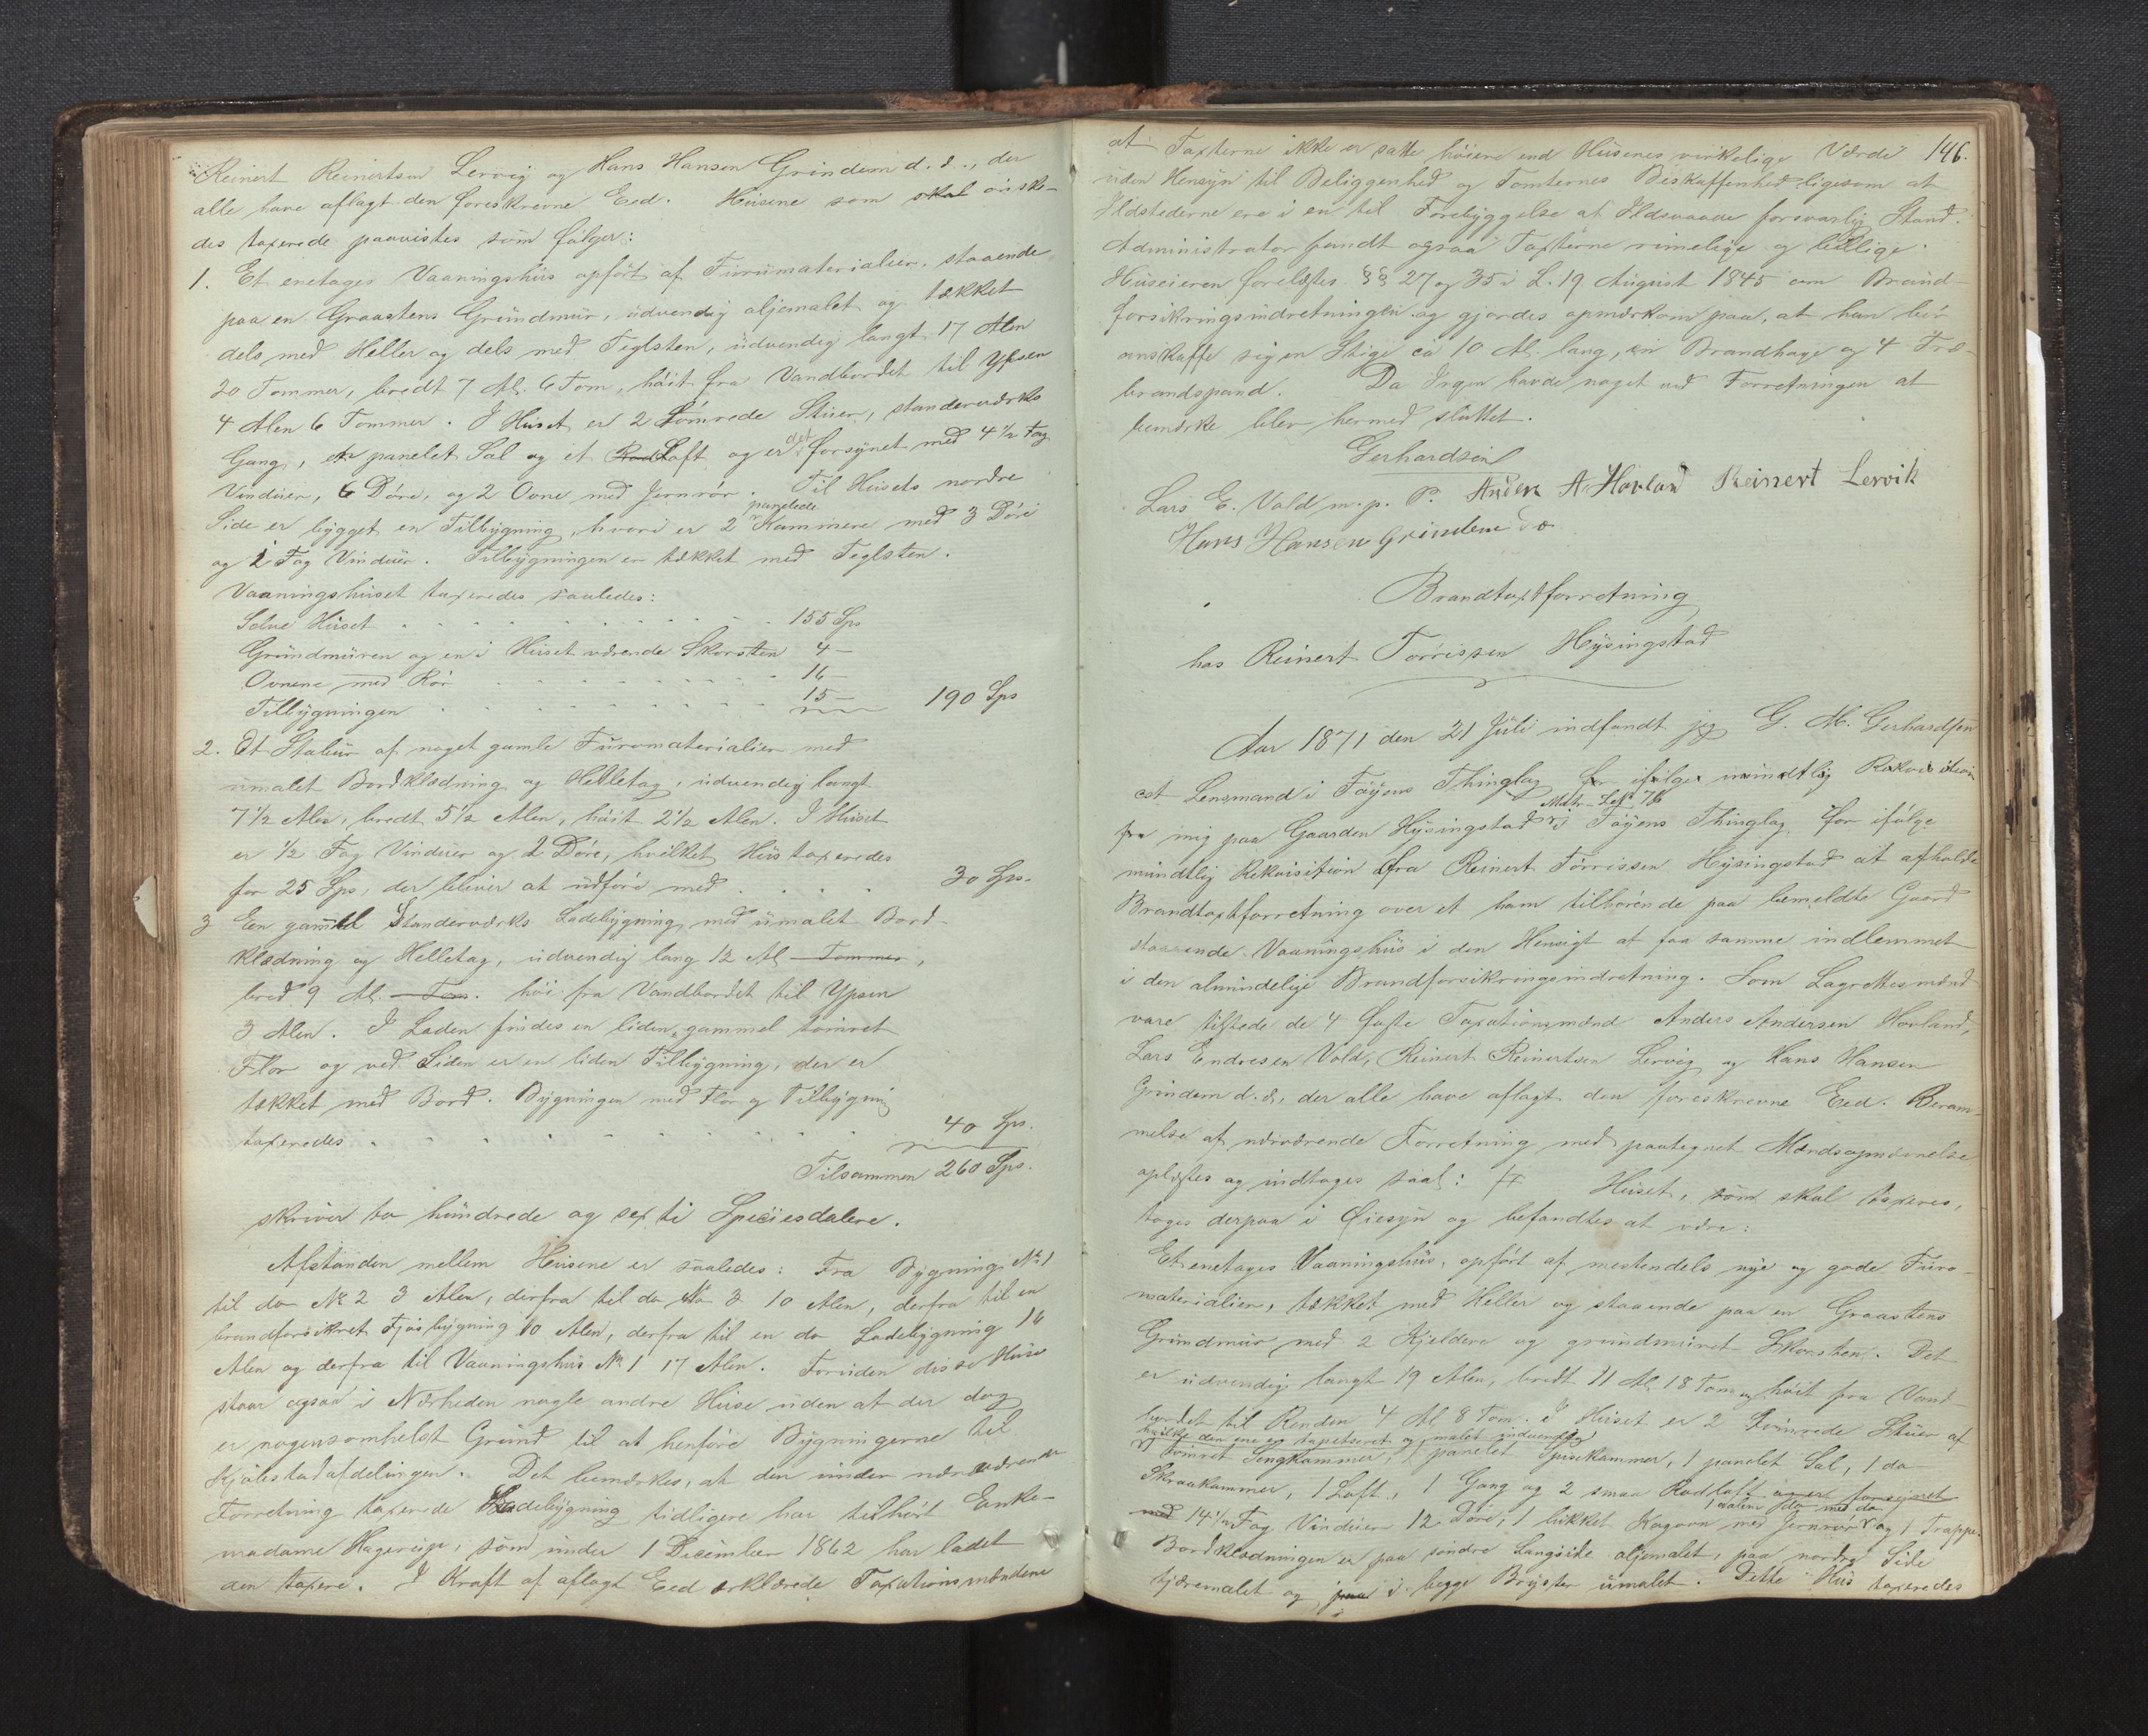 Reinert Reinertsen Lervig og Hans Hansen Grindem d. d., der
alle have aflagt den foreskrevne Eed. Husene som skal önske-
des taxerede paavistes som fölger:
1. Et enetages Vaaningshus opfört af Furumaterialier, staaende
paa en Graastens Grundmur, udvendig oljemalet og tækket
dels med Heller og dels med Teglsten, udvendig langt 17 Alen
20 Tommer, bredt 7 Al. 6 Tom, höit fra Vandbordet til Ypsen
4 Alen 6 Tommer. I Huset er 2 tömrede Stuer, standerværks
Gang, et panelet Sal og et Rad Loft og er det forsynet med 4 1/2 Fag
Vinduer, 6 Döre, og 2 Ovne med Jernrör. Til Husets nordre
Side er bygget en Tilbygning, hvori er 2 panelede Kammere med 3 Döre
og 2 Fag Vinduer. Tilbygningen er tækket med Teglsten.
Vaaningshuset taxeredes saaledes:
Selve Huset 155 Sps
Grundmuren og en i Huset værende Skorsten 4 —
Ovnene med Rör 16 —
Tilbygningen 15 — 190 Sps
2. Et Stabur af noget gamle Furumaterialier med
umalet Bordklædning og Helletag, udvendig langt
7 1/2 Alen, bredt 5 1/2 Alen, höit 2 1/2 Alen. I Huset
er 1/2 Fag Vinduer og 2 Döre, hvilket Hus taxeredes
for 25 Sps, der bliver at udföre med 30 Sps.
3 En gammel Standerværks Ladebygning, med umalet Bord-
klædning og Helletag, udvendig lang 12 Al Tommer,
bred 9 Al. Tom. höi fra Vandbordet til Ypsen
3 Alen. I Laden findes en liden gammel tömret
Flor og ved Siden er en liden Tilbygning, der er
tækket med Bord. Bygningen med Flor og Tilbygning
taxeredes 40 Sps.
Tilsammen 260 Sps.
skriver to hundrede og sexti Speciesdalere.
Afstanden mellem Husene er saaledes: Fra Bygning No 1
til do No 2 3 Alen, derfra til do No 3 10 Alen, derfra til en
brandforsikret Fjösbygning 10 Alen, derfra til en do Ladebygning 16
Alen og derfra til Vaaningshus No 1 17 Alen. Foruden disse Huse
staar ogsaa i Nærheden nogle andre Huse uden at der dog
er nogensomhelst Grund til at henföre Bygningerne til
Kjöbestadafdelingen. Det bemærkes, at den under nærværende
Forretning taxerede Ladebygning tidligere har tilhört Enke-
madame Hagerup, som under 1 December 1862 har ladet
den taxere. I Kraft af aflagt Eed erklærede Taxationsmændene
146.
at Taxterne ikke er satte höiere end Husenes virkelige Værdi
uden Hensyn til Beliggenhed og Tomternes Beskaffenhed ligesom at
Ildstederne ere i en til Forebyggelse af Ildsvaade forsvarlig Stand.
Administrator fandt ogsaa Taxterne rimelige og billige.
Huseieren forelæstes §§ 27 og 35 i L. 19 August 1845 om Brand-
forsikringsindretningen og gjordes opmærksom paa, at han bör
anskaffe sig en Stige ca 10 Al. lang, en Brandhage og 4 Træ-
brandspand. Da Ingen havde noget ved Forretningen at
bemærke blev hermed sluttet.
Gerhardsen
Lars E. Vold m. p. P. Anders A Hovland Reinert Lervik
Hans Hansen Grindem do
Brandtaxtforretning
hos Reinert Torrissen Hysingstad
Aar 1871 den 21 Juli indfandt jeg G. M. Gerhardsen
cst Lensmand i Föyens Thinglag for ifölge mundtlig Rekvisition
fra mig paa Gaarden Hysingstad Matr. Lø 76 i Föyens Thinglag for ifölge
mundtlig Rekvisition fra Reinert Törrissen Hysingstad at afholde
Brandtaxtforretning over et ham tilhörende paa bemeldte Gaard
staaende Vaaningshus i den Hensigt at faa samme indlemmet
i den almindelige Brandforsikringsindretning. Som Lagrettesmænd
vare tilstede de 4 faste Taxationsmænd Anders Andersen Hovland,
Lars Endresen Vold, Reinert Reinertsen Lervig og Hans Hansen
Grindem d. d, der alle have aflagt den foreskrevne Eed. Beram-
melse af nærværende Forretning med paategnet Mændsopnævnelse
oplæstes og indtages saal: Huset, som skal taxeres,
toges derpaa i Öiesyn og befandtes at være:
Et enetages Vaaningshus, opfört af mestendels nye og gode Furu-
materialier, tækket med Heller og staaende paa en Graastens
Grundmur med 2 Kjeldere og grundmuret Skorsten. Det
er udvendig langt 19 Alen, bredt 11 Al. 18 Tom og höit fra Vand-
bordet til Renden 4 Al 8 Tom. I Huset er 2 tömrede Stuer af
hvilke den ene er tapetseret og malet indvendig
tömret Sengkammer, 1 panelet Spisekammer, 1 panelet Sal, 1 do
Skraakammer, 1 Loft, 1 Gang og 2 smaa Radloft og er forsynet
med 14 1/2 Fag Vinduer 12 Döre, 1 lukket Kogovn med Jernrör 1 aaben do med do og 1 Trappe.
Bordklædningen er paa söndre Langside oljemalet, paa nordre Side
tjæremalet og paa i begge Bryster umalet. Dette Hus taxeredes